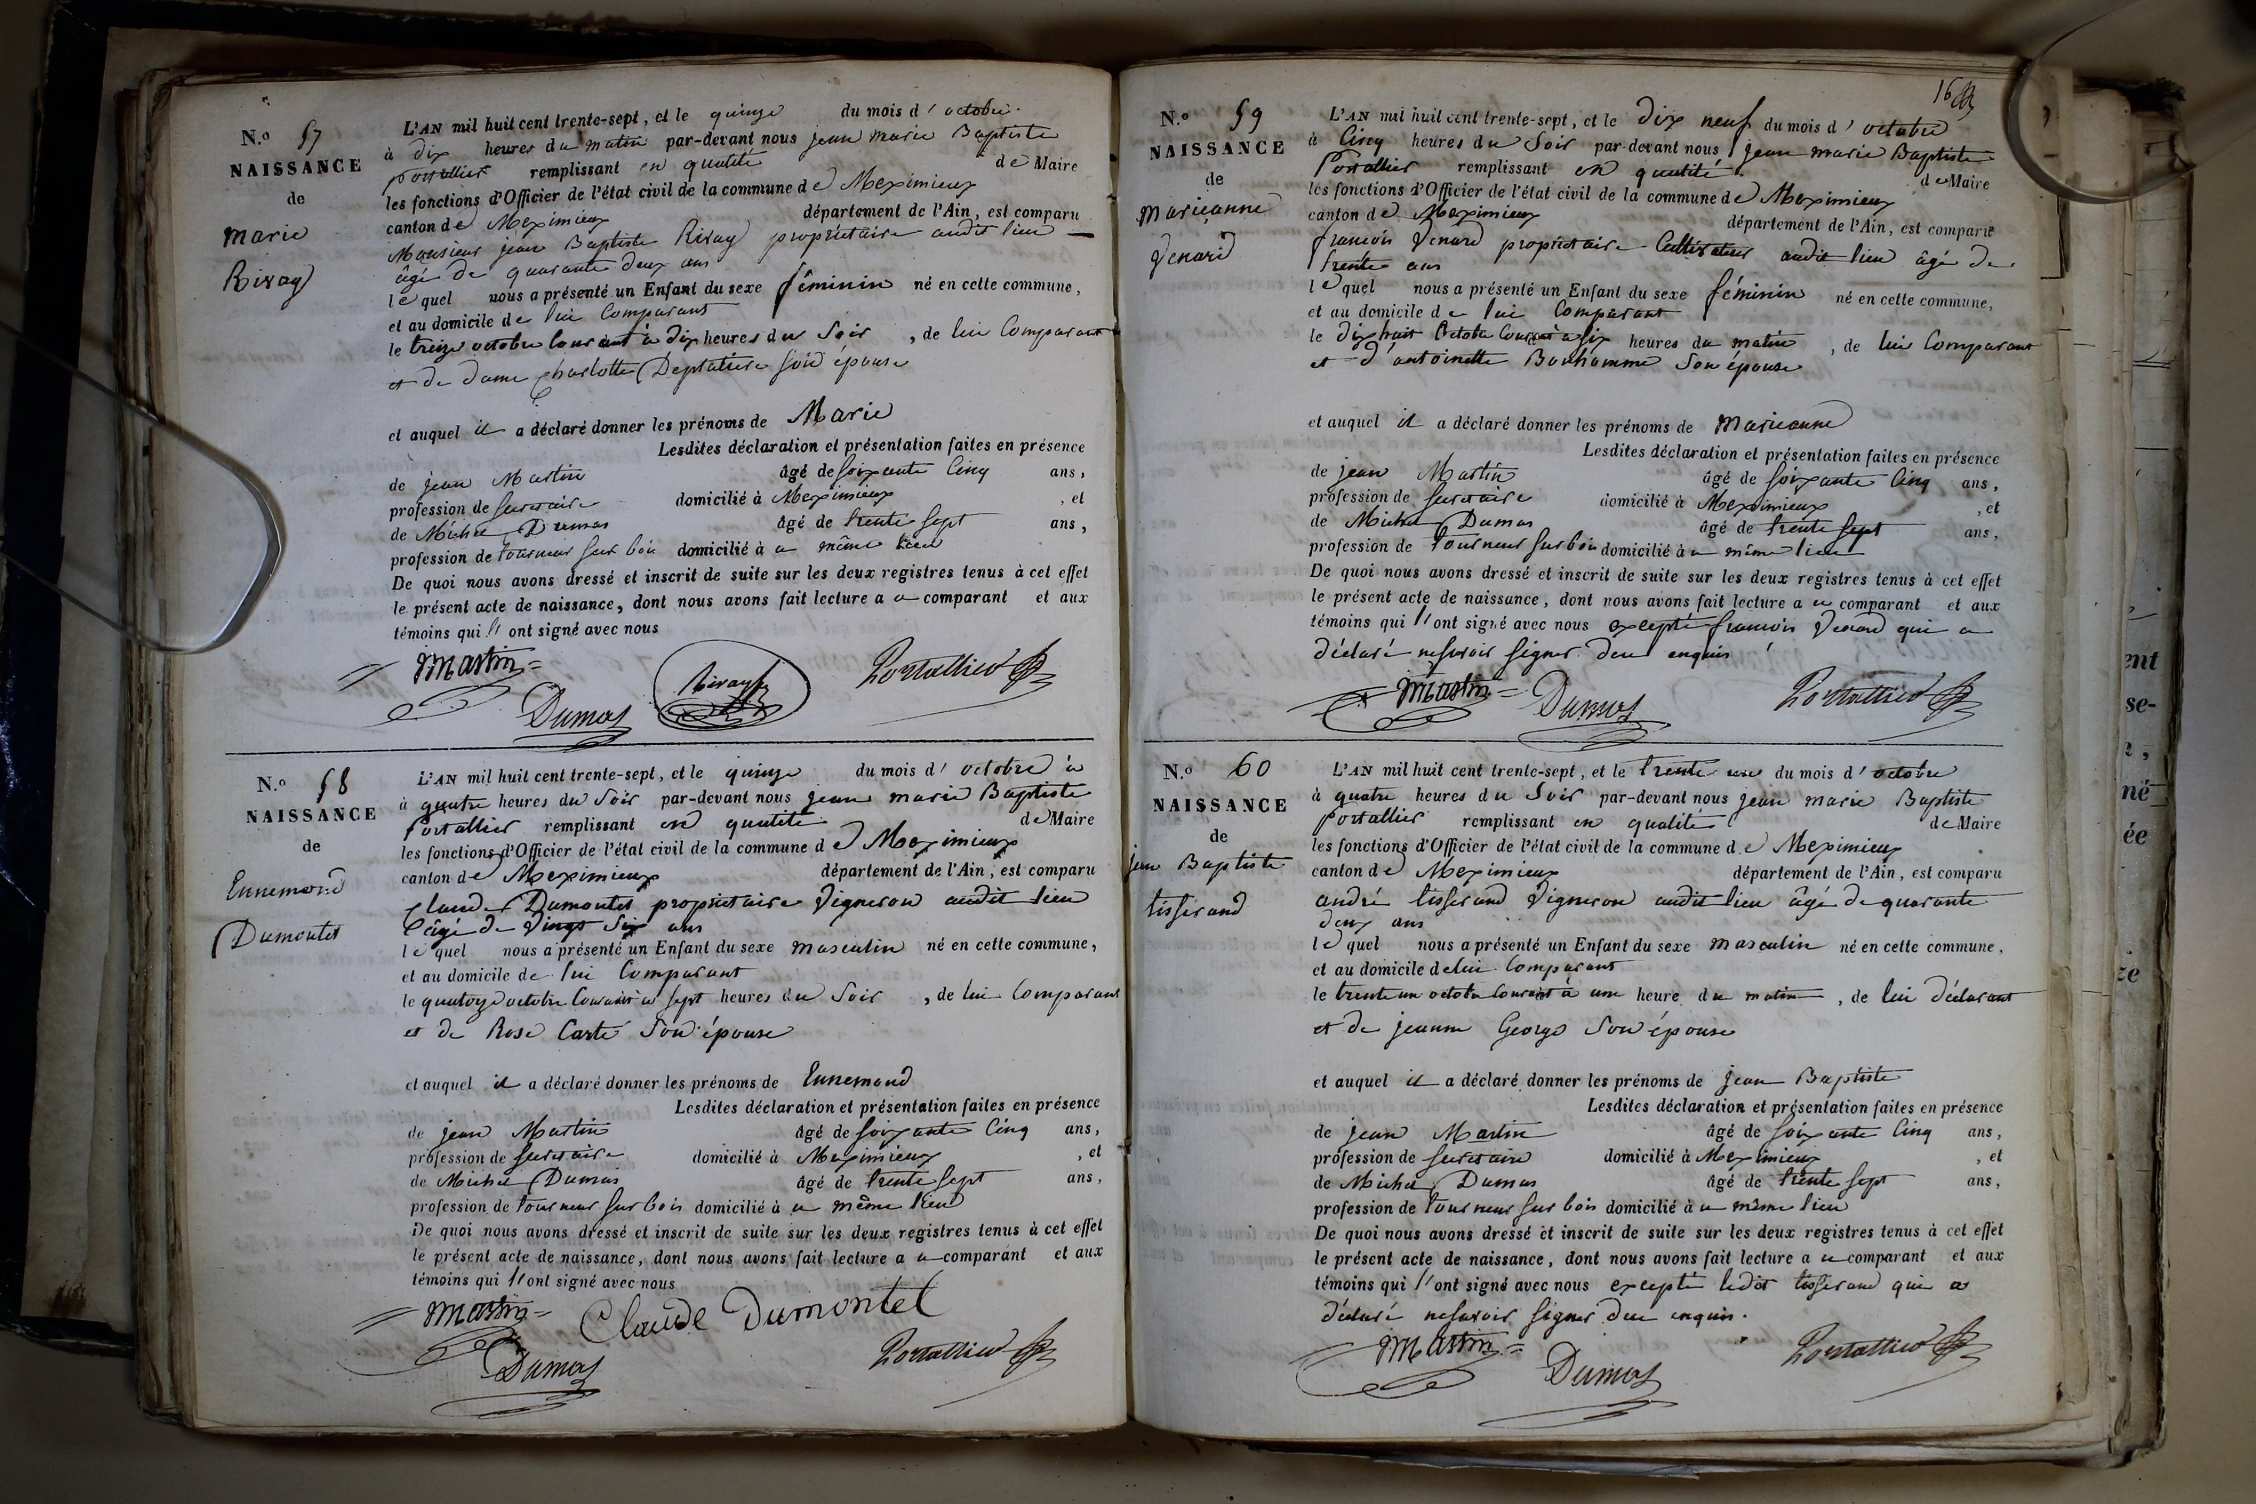 N.º 57
NAISSANCE
de
Marie
Rivay
L'AN mil huit cent trente-sept, et le quinze du mois d'octobre
à dix heures du matin par-devant nous jean marie Baptiste
portallier remplissant en qualité de Maire
les fonctions d'Officier de l'état civil de la commune de Meximieux
canton de Meximieux département de l'Ain, est comparu
Monsieur jean Baptiste Rivay propriétaire audit lieu
âgé de quarante deux ans
lequel nous a présenté un Enfant du sexe féminin né en cette commune,
et au domicile de lui Comparant
le treize octobre courant à dix heures du Soir, de lui Comparant
et de dame charlotte son épouse
et auquel il a déclaré donner les prénoms de Marie
Lesdites déclaration et présentation faites en présence
de jean Martin âgé de soixante Cinq ans,
profession de secretaire domicilié à Meximieux, et
de Michel Dumas âgé de trente sept ans,
profession de tourneur sur bois domicilié à u même lieu
De quoi nous avons dressé et inscrit de suite sur les deux registres tenus à cet effet
le présent acte de naissance, dont nous avons fait lecture a u comparant et aux
témoins qui l'ont signé avec nous
Martin
Dumas
Rivay
Portallier
N.º 58
NAISSANCE
de
Ennemond
Dumontet
L'AN mil huit cent trente-sept, et le quinze du mois d'octobre à
à quatre heures du Soir par-devant nous jean marie Baptiste
Portallier remplissant en qualité de Maire
les fonctions d'Officier de l'état civil de la commune de Meximieux
canton de Meximieux département de l'Ain, est comparu
Claude Dumontet propriétaire Vigneron audit lieu
âgé de Vingt Six ans
lequel nous a présenté un Enfant du sexe masculin né en cette commune,
et au domicile de lui Comparant
le quatorze octobre Courant à sept heures du Soir, de lui Comparant
et de Rose Carte Son épouse
et auquel il a déclaré donner les prénoms de Ennemond
Lesdites déclaration et présentation faites en présence
de jean Martin âgé de soixante Cinq ans,
profession de secretaire domicilié à Meximieux, et
de Michel Dumas âgé de trente sept ans,
profession de tourneur sur bois domicilié à u même lieu
De quoi nous avons dressé et inscrit de suite sur les deux registres tenus à cet effet
le présent acte de naissance, dont nous avons fait lecture a u comparant et aux
témoins qui l'ont signé avec nous
Martin
Claude Dumontet
Dumas
Portallier
16
N.º 59
NAISSANCE
de
Marieanne
Venard
L'AN mil huit cent trente-sept, et le dix neuf du mois d'octobre
à Cinq heures du Soir par-devant nous jean marie Baptiste
Portallier remplissant en qualité de Maire
les fonctions d'Officier de l'état civil de la commune de Meximieux
canton de Meximieux département de l'Ain, est comparu
françois Venard propriétaire Cultivateur audit lieu âgé de
trente ans
lequel nous a présenté un Enfant du sexe féminin né en cette commune,
et au domicile de lui Comparant
le dix huit Octobre Courant à six heures du matin, de lui Comparant
et d'antoinette Bonhomme Son épouse
et auquel il a déclaré donner les prénoms de Marieanne
Lesdites déclaration et présentation faites en présence
de jean Martin âgé de soixante Cinq ans,
profession de secretaire domicilié à Meximieux, et
de Michel Dumas âgé de trente sept ans,
profession de tourneur sur bois domicilié à u même lieu
De quoi nous avons dressé et inscrit de suite sur les deux registres tenus à cet effet
le présent acte de naissance, dont nous avons fait lecture a u comparant et aux
témoins qui l'ont signé avec nous excepté françois Venard qui a
déclaré ne savoir signer de ce enquis
Martin
Dumas
Portallier
N.º 60
NAISSANCE
de
jean Baptiste
tisserand
L'AN mil huit cent trente-sept, et le trente un du mois d'octobre
à quatre heures du Soir par-devant nous jean marie Baptiste
portallier remplissant en qualité de Maire
les fonctions d'Officier de l'état civil de la commune de Meximieux
canton de Meximieux département de l'Ain, est comparu
andré tisserand Vigneron audit lieu âgé de quarante
deux ans
lequel nous a présenté un Enfant du sexe masculin né en cette commune,
et au domicile de lui Comparant
le trente un octobre courant à une heure du matin, de lui déclarant
et de jeanne George Son épouse
et auquel il a déclaré donner les prénoms de jean Baptiste
Lesdites déclaration et présentation faites en présence
de jean Martin âgé de soixante Cinq ans,
profession de secretaire domicilié à Meximieux, et
de Michel Dumas âgé de trente sept ans,
profession de tourneur sur bois domicilié à u même lieu
De quoi nous avons dressé et inscrit de suite sur les deux registres tenus à cet effet
le présent acte de naissance, dont nous avons fait lecture a u comparant et aux
témoins qui l'ont signé avec nous excepté ledit tisserand qui a
déclaré ne savoir signer de ce enquis.
Martin
Dumas
Portallier
ent
se-
né
ée